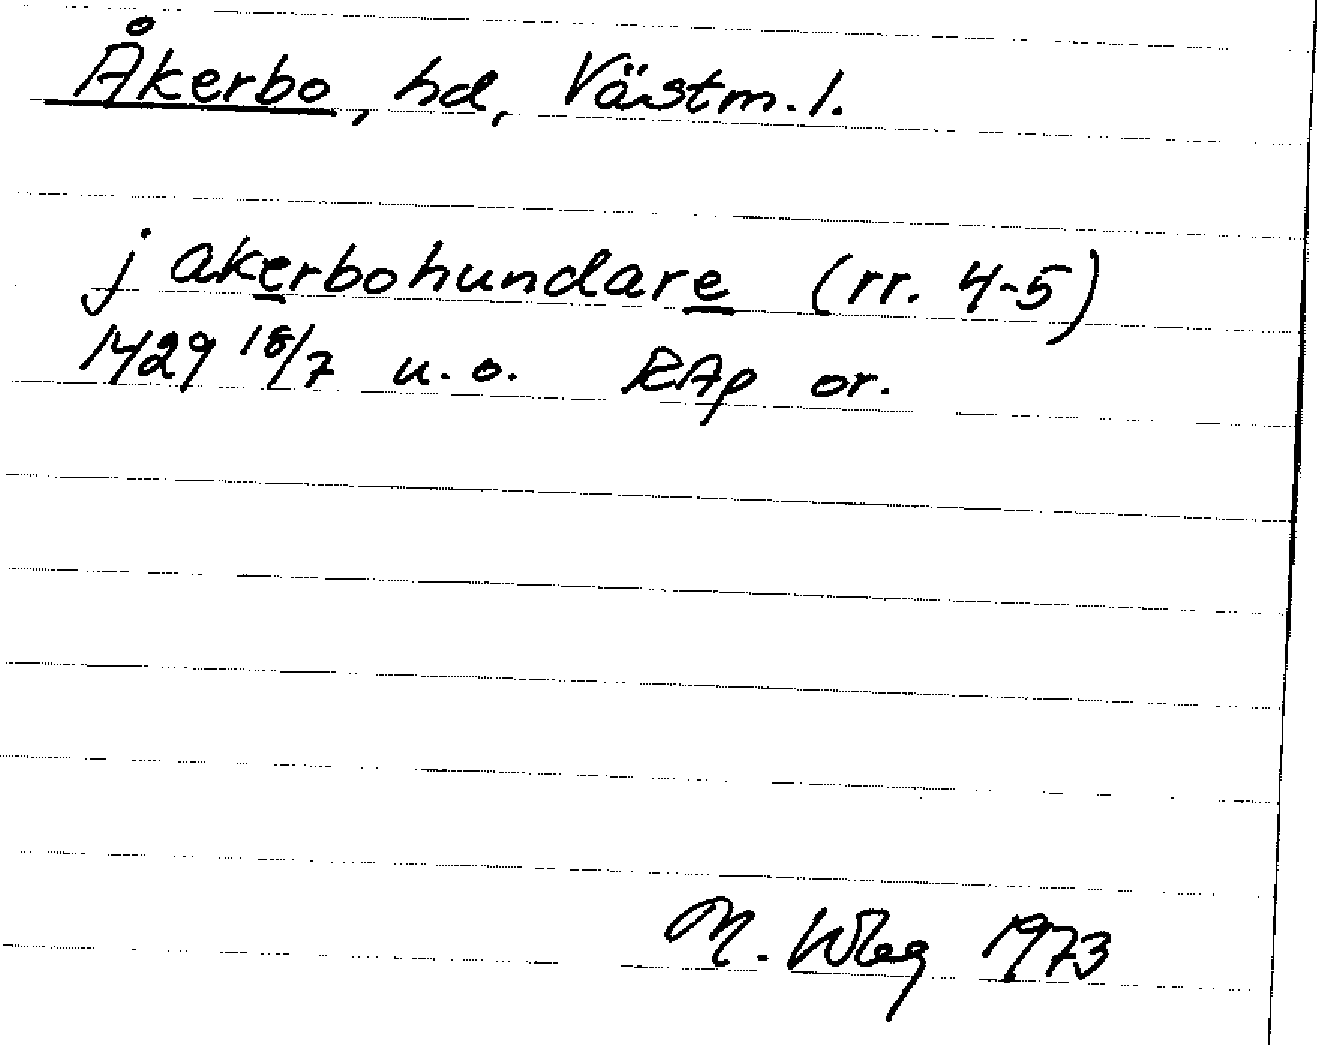 Åkerbo, hd, Västm. l.
j akerbohundare (rr. 4-5)
1429 18/7 u. o. RAp or.
M. Wbg 1973